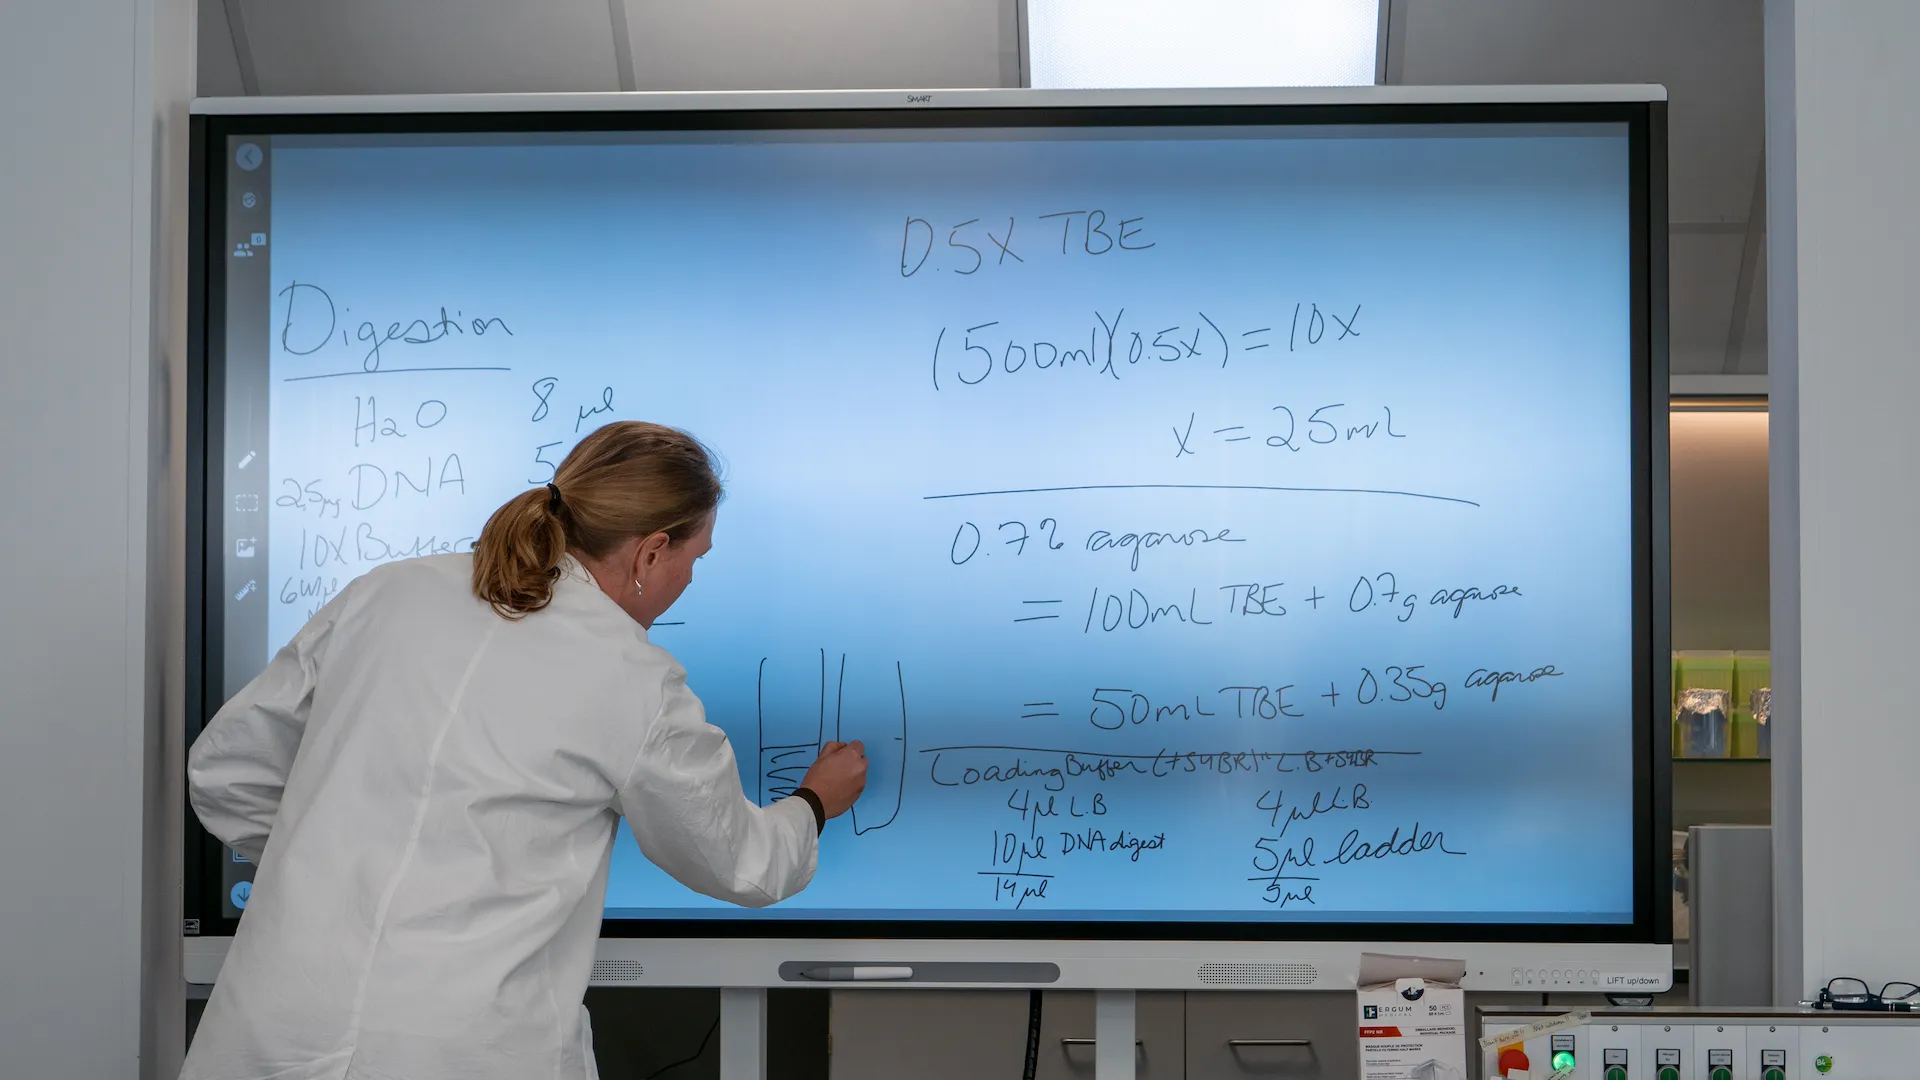 SMART
0
Digestion
H2O 8 µl
2.5µg DNA 5
10X Buffer
0.5X TBE
(500ml)(0.5x) = 10x
x = 25mL
0.7% agarose
= 100mL TBE + 0.7g agarose
= 50mL TBE + 0.35g agarose
Loading Buffer (+SYBR)" L.B+SYBR
4µl L.B
10µl DNA digest
14µl
4µl L.B.
5µl ladder
9µl
LIFT up/down
ERGUM
MEDICAL
50
FFP2 NR